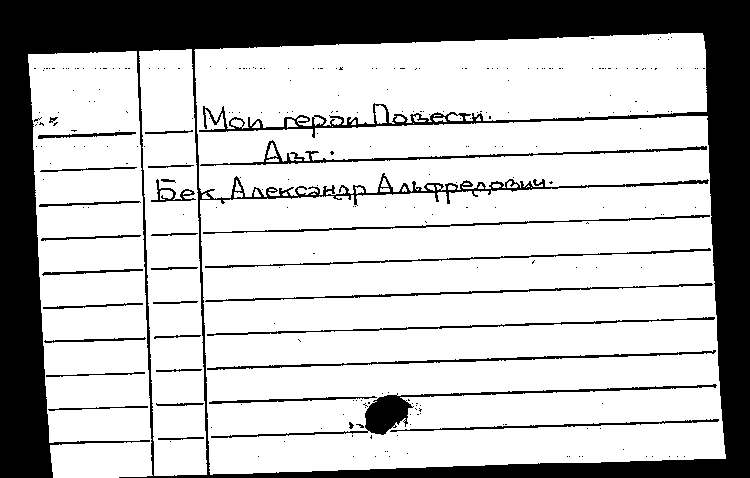 Мои герои. Повести.
Авт.:
Бек, Александр Альфредович.